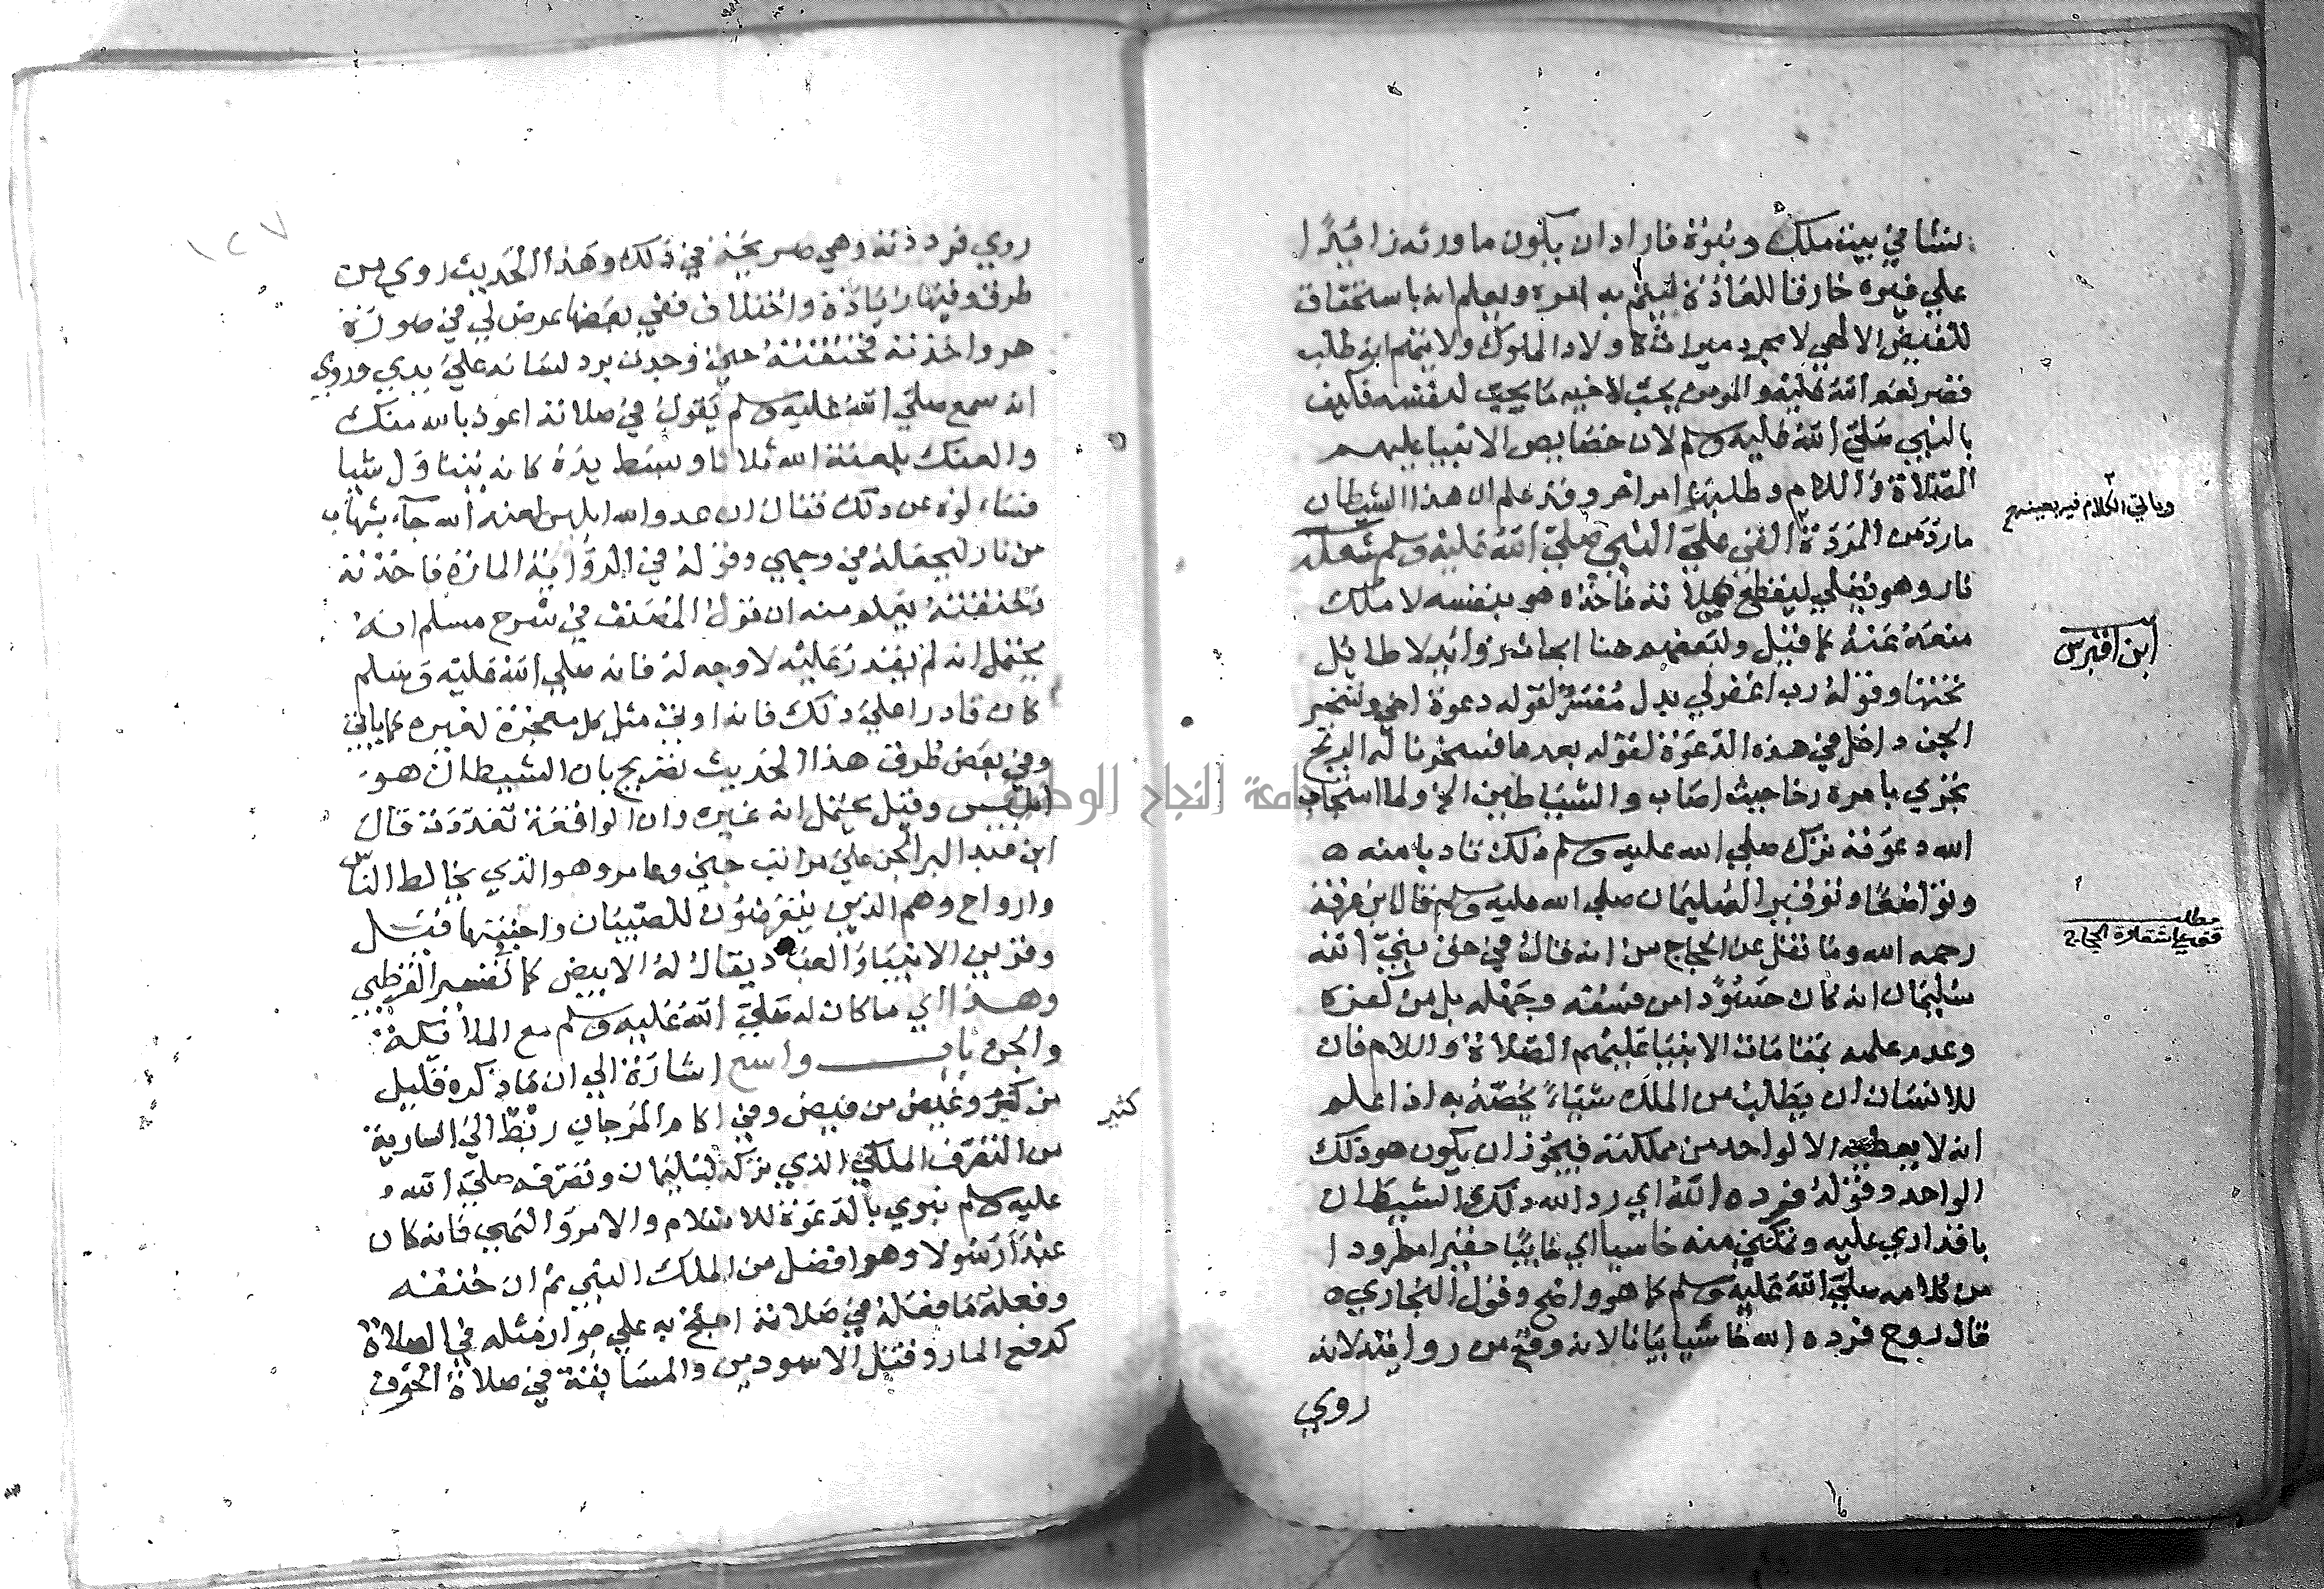 لنشا في بيت ملك ونبوة فاراد ان يكون ما ورثه زائدا
علي غيره خارقا للعادة ليتم به امره ويعلم انه باستحقاق
للفيض الالهي لا مجرد ميراث كاولاد الملوك ولا يتهم انه طلب
قصر نعم الله عليه والمومن يحب لاخيه ما يحب لنفسه فكيف
بالنبي صلي الله عليه وسلم لان خصايص الانبيا عليهم
الصلاة والسلام وطلبها امر اخر وقد علم ان هذا الشيطان
مارد من المردة القي علي النبي صلي الله عليه وسلم شعلة
نار وهو يصلي ليقطع صلاته فاخذه هو بنفسه لا ملك
منعه عنه كما قيل ولبعضهم هنا ابحاث زوائد لا طايل
تحتها وقوله رب اغفر لي بدل مفسر لقوله دعوة اخي وتسخير
الجن داخل في هذه الدعوة لقوله بعدها فسخرنا له الريح
تجري بامره رخا حيث اصاب والشياطين الخ ولما استجاب
الله دعوته ترك صلي الله عليه وسلم ذلك تادبا منه
وتواضعا وتوقيرا لسليمان صلي الله عليه وسلم قال ابن عرفة
رحمه الله وما نقل عن الحجاج من انه قال في حق نبي الله
سليمان انه كان حسودا من فسقه وجهله بل من كفره
وعدم علمه بمقامات الانبيا عليهم الصلاة والسلام فان
للانسان ان يطلب من الملك شياء يخصه به اذا علم
انه لا يعطيه الا لواحد من مملكته فيجوز ان يكون هو ذلك
الواحد وقوله فرده الله اي رد الله ذلك الشيطان
باقداري عليه وتمكني منه خاسيا اي خايبا حقيرا مطرودا
من كلامه صلي الله عليه وسلم كما هو واضح وقول البخاري
قال روح فرده الله خاسيا بيانا لانه وقع من روايته لانه
روي
وياتي الكلام فيه بعينه
ابن اقبرس
مطلب
قف علي شقاوة الحجاج
١٢٧
روي فرددته وهي صريحة في ذلك وهذا الحديث روي من
طرق وفيها زيادة واختلاف ففي بعضها عرض لي في صورة
هر واخذته فخنقته حتي وجدت برد لسانه علي يدي وروي
انه سمع صلي الله عليه وسلم يقول في صلاته اعوذ بالله منك
والعنك بلعنة الله ثلاثا وبسط يده كانه يتناول شيا
فساءلوه عن ذلك فقال ان عدو الله ابليس لعنه الله جاء بشهاب
من نار ليجعله في وجهي وقوله في الرواية المارة فاخذته
فخنقته يعلم منه ان قول المصنف في شرح مسلم انه
يحتمل انه لم يقدر عليه لا وجه له فانه صلي الله عليه وسلم
كان قادرا علي ذلك فانه اوتي مثل كل معجزة لغيره كما ياتي
وفي بعض طرق هذا الحديث تصريح بان الشيطان هو
ابليس وقيل يحتمل انه غيره وان الواقعة تعددت قال
ابن عبد البر الجن علي مراتب جني وعامر وهو الذي يخالط الناس
وارواح وهم الذين يتعرضون للصبيان واخبثها قيل
وقرين الانبيا والعباد يقال له الابيض كما في تفسير القرطبي
وهذا اي ما كان له صلي الله عليه وسلم مع الملائكة
والجن باب واسع اشارة الي ان ما ذكره قليل
من كثير وغيض من فيض وفي اكام المرجان ربط الي السارية
كثير
من التصرف الملكي الذي تركه لسليمان وتصرفه صلي الله
عليه وسلم نبوي بالدعوة للاسلام والامر والنهي فانه كان
عبدا رسولا وهو افضل من الملك النبي ثم ان خنقه
وفعله ما فعله في صلاته احتج به علي جواز مثله في الصلاة
كدفع المار وقتل الاسودين والمسايفة في صلاة الخوف
جامعة النجاح الوطنية